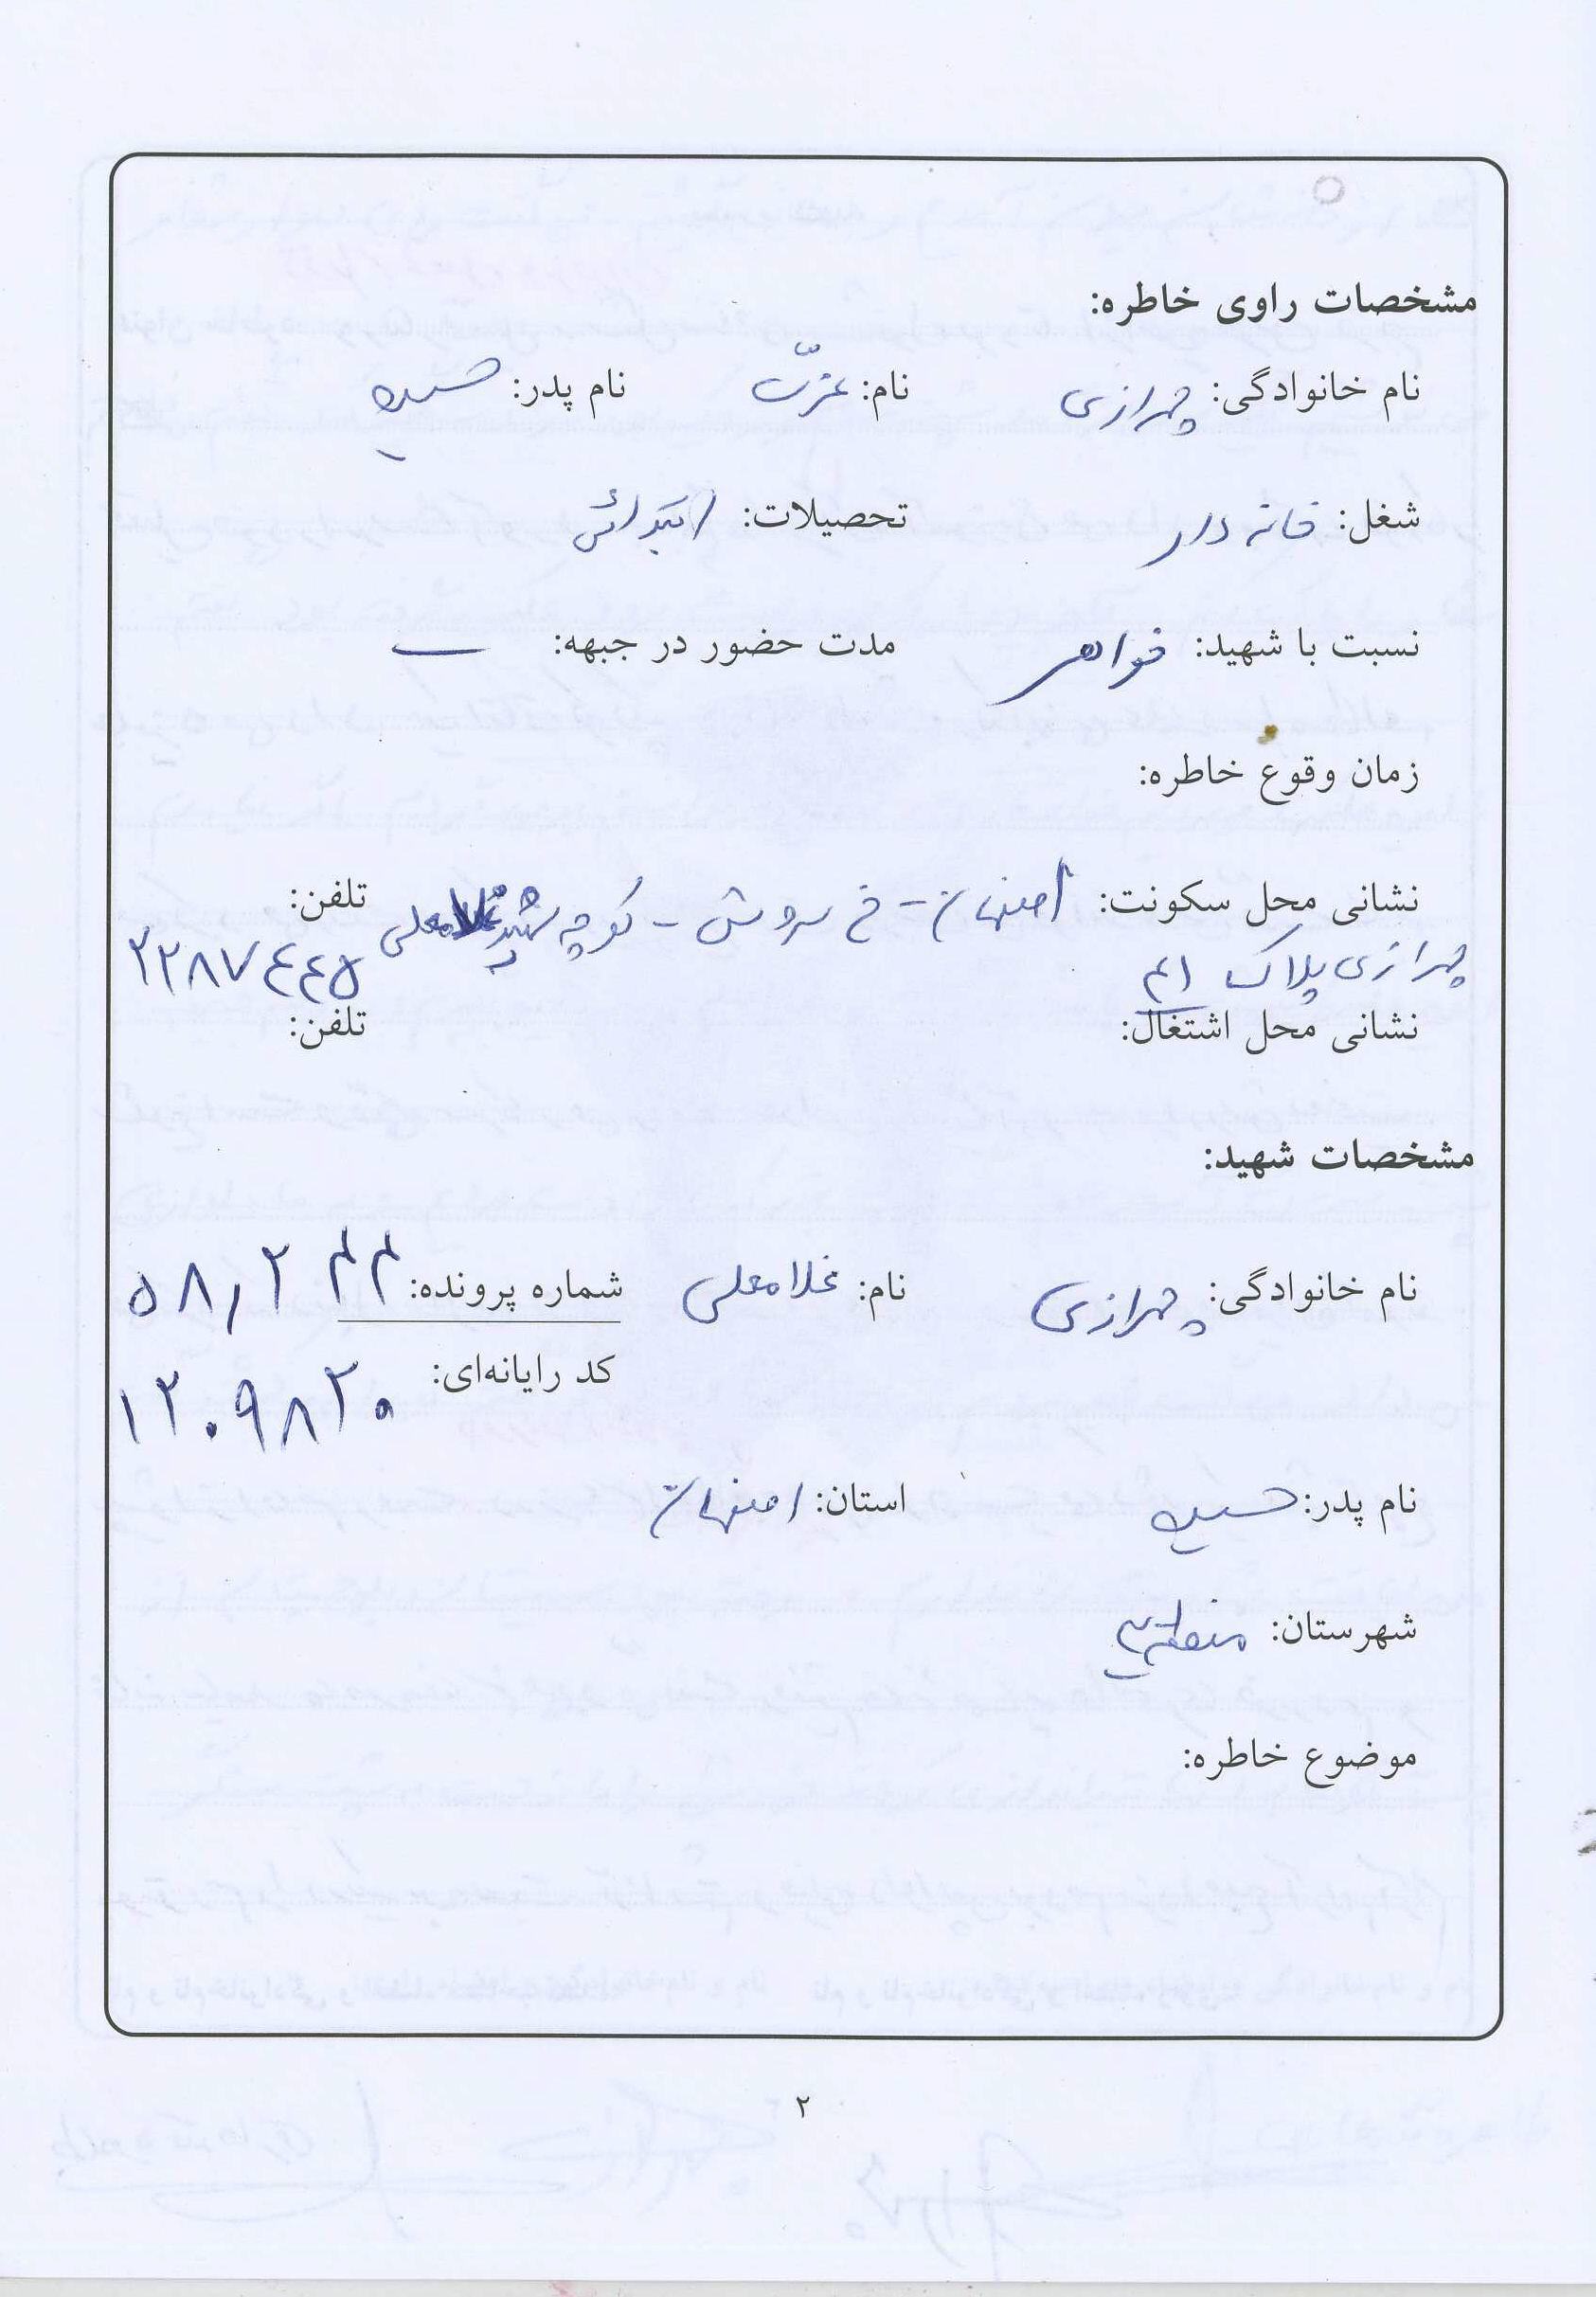 مشخصات راوی خاطره:
نام خانوادگی: چهرازی نام: عزّت نام پدر: حسین
شغل: خانه دار تحصیلات: ابتدائی
نسبت با شهید: خواهر مدت حضور در جبهه: —
زمان وقوع خاطره:
نشانی محل سکونت: اصفهان - خ سروش - کوچه شهید غلامعلی تلفن:
چهرازی پلاک ۴۱ ۲۲۸۷۴۴۵
نشانی محل اشتغال: تلفن:
مشخصات شهید:
نام خانوادگی: چهرازی نام: غلامعلی شماره پرونده: ۵۸٫۲۴۴
کد رایانه‌ای: ۱۲۰۹۸۲۰
نام پدر: حسین استان: اصفهان
شهرستان: منطقه ۳
موضوع خاطره:
۲